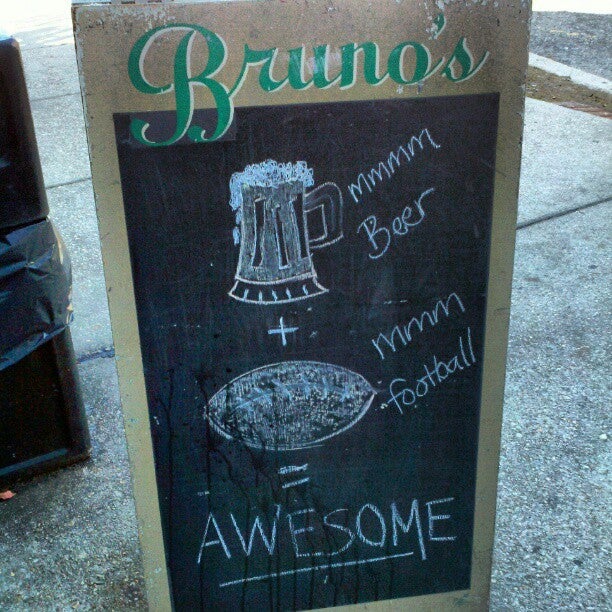 Bruno's
mmmm
Beer
+
mmm
football
=
AWESOME